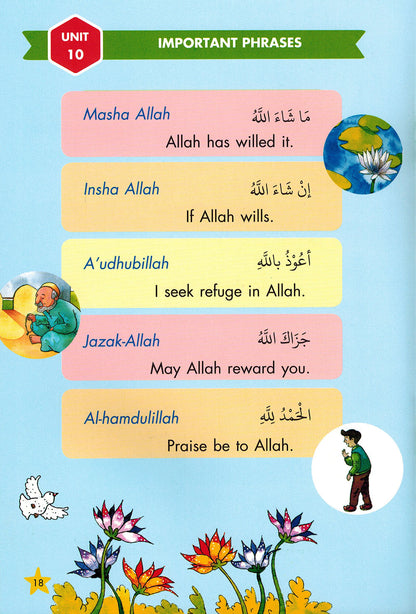 UNIT
10
IMPORTANT PHRASES
Masha Allah مَا شَاءَ اللَّهُ
Allah has willed it.
Insha Allah إِنْ شَاءَ اللَّهُ
If Allah wills.
A’udhubillah أَعُوْذُ بِاللَّهِ
I seek refuge in Allah.
Jazak-Allah جَزَاكَ اللَّهُ
May Allah reward you.
Al-hamdulillah الْحَمْدُ لِلَّهِ
Praise be to Allah.
18